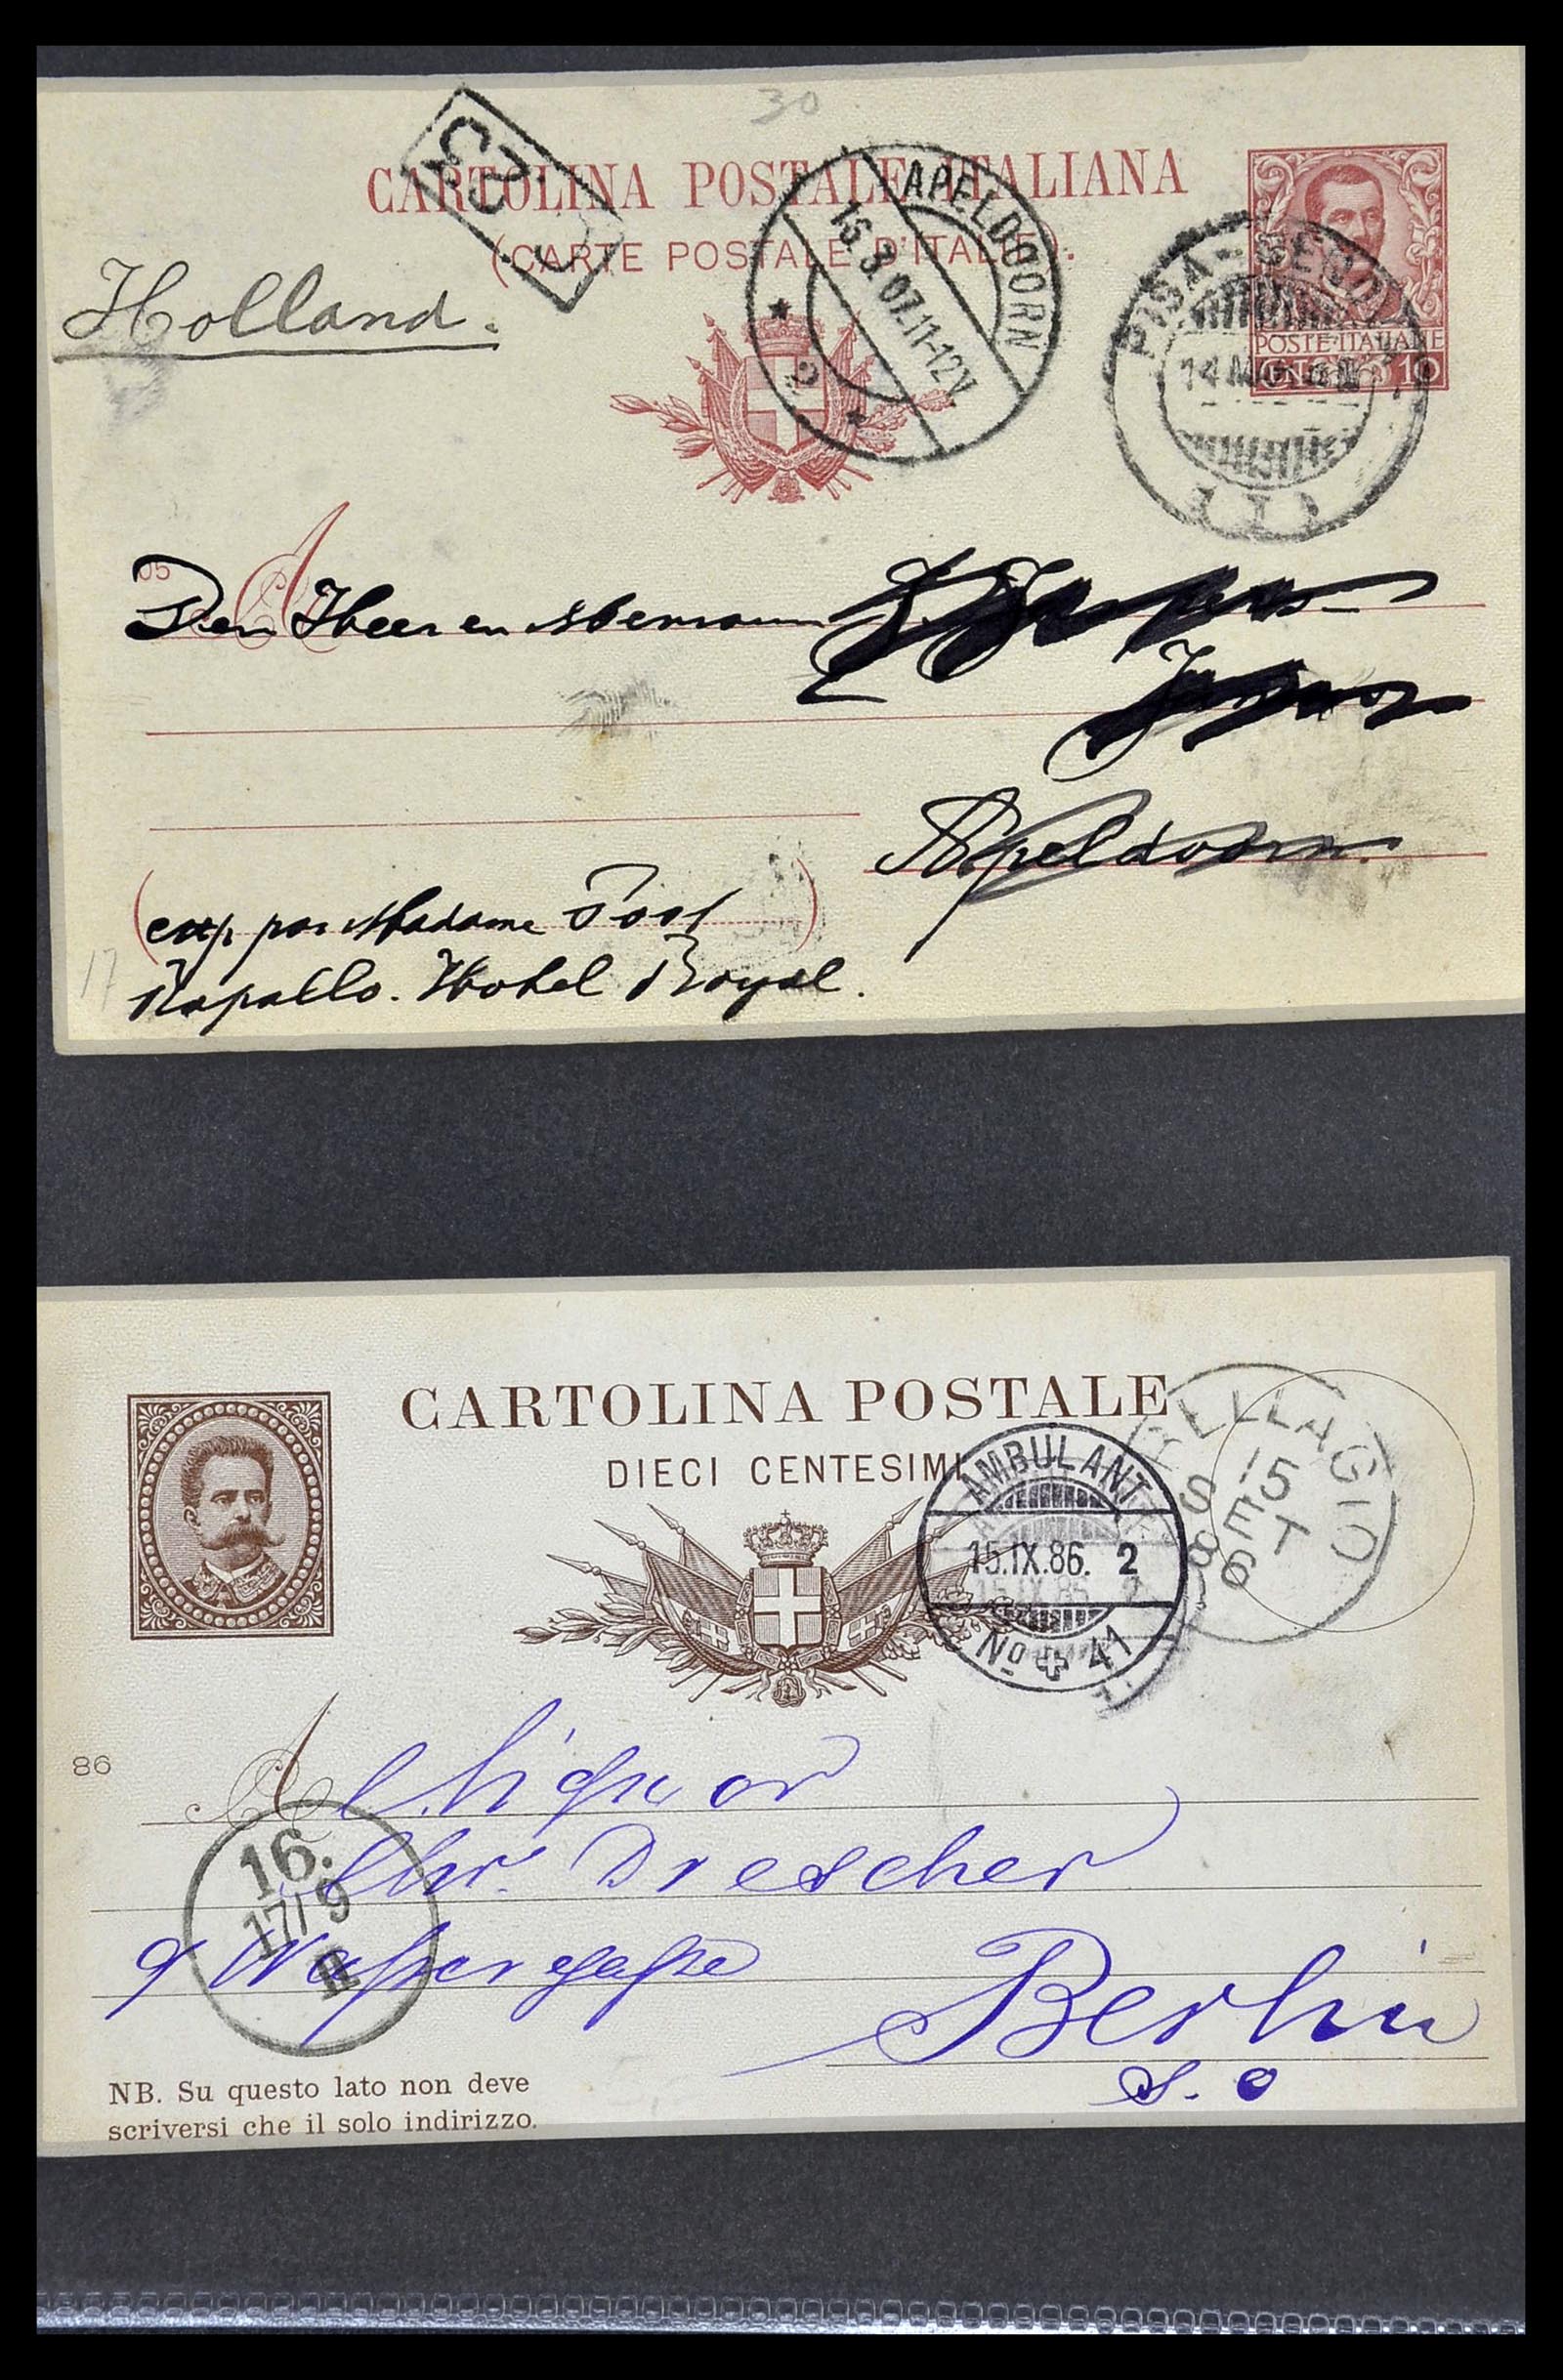 30
CARTOLINA POSTALE ITALIANA
(CARTE POSTALE D'ITALIE).
APELDOORN
16.3.07.11-12V.
2
PISA-GENOVA
14 M
POSTE ITALIANE
CENT 10
Holland.
05
Den Heer en Mevrouw
Apeldoorn.
(exp par Madame Post)
Rapallo. Hotel Royal.
17
CARTOLINA POSTALE
DIECI CENTESIMI
AMBULANT
15.IX.86. 2
No 41
BELLAGIO
15
SET
86
86
A
Signor
Chr. Drescher
9 Wassergasse
Berlin
S. O
16.
17/9
NB. Su questo lato non deve
scriversi che il solo indirizzo.